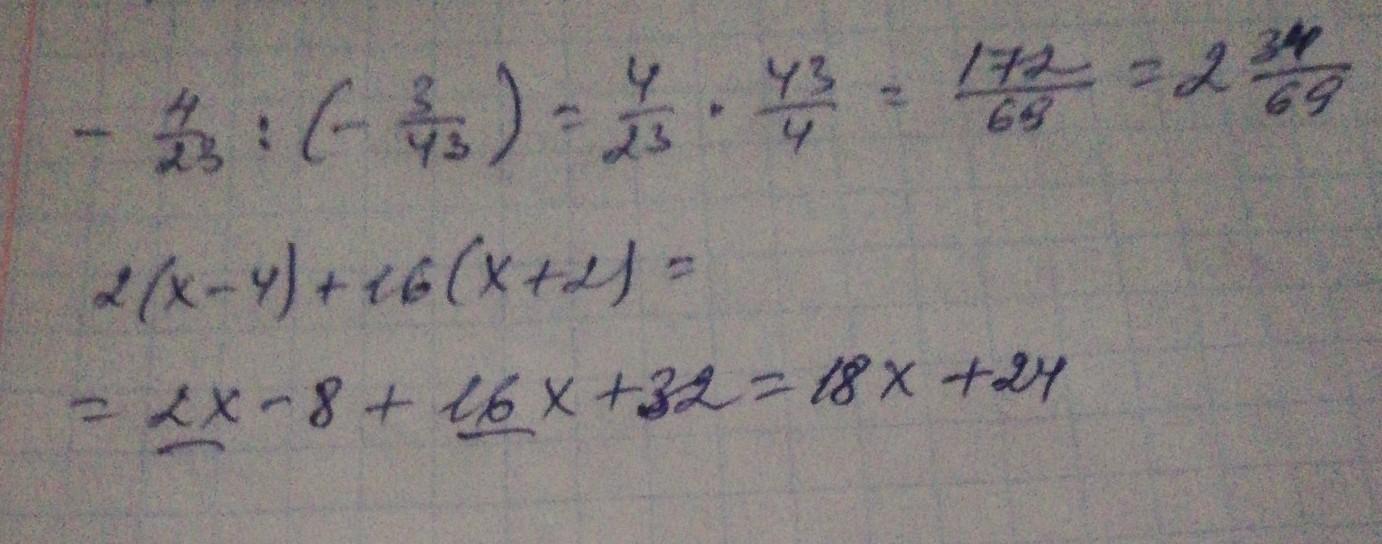 - 4/23 : (- 3/43) = 4/23 · 43/4 = 172/69 = 2 34/69
2(x-4)+16(x+2)=
= 2x-8+16x+32=18x+24